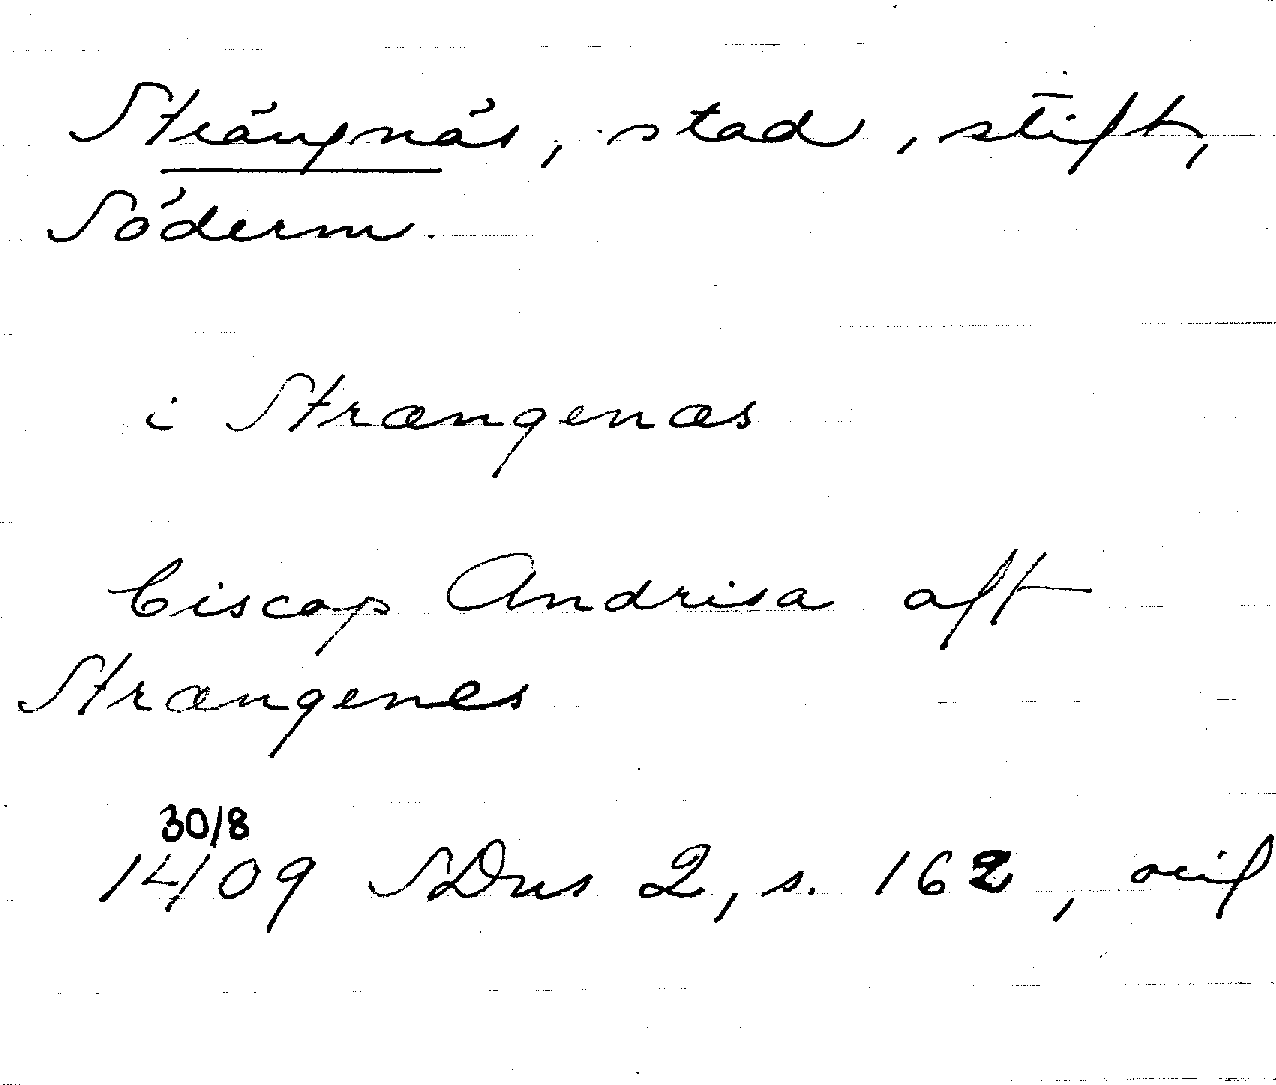 Strängnäs, stad, stift,
Söderm.
i Strængenæs
biscop Andrisa aff
Strængenes
30/8
1409 SDns 2, s. 162, orig